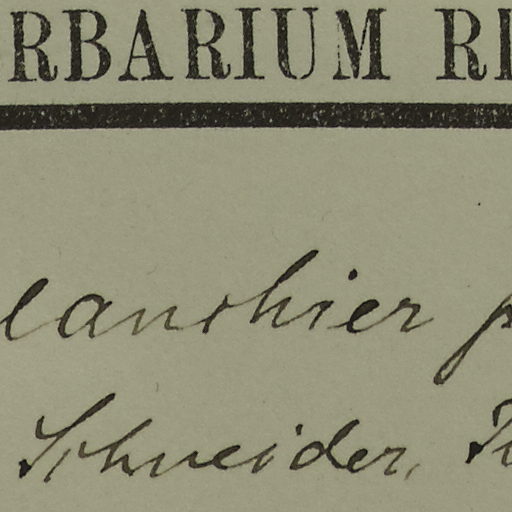 RBARIUM RI
lanchier p
Schneider,